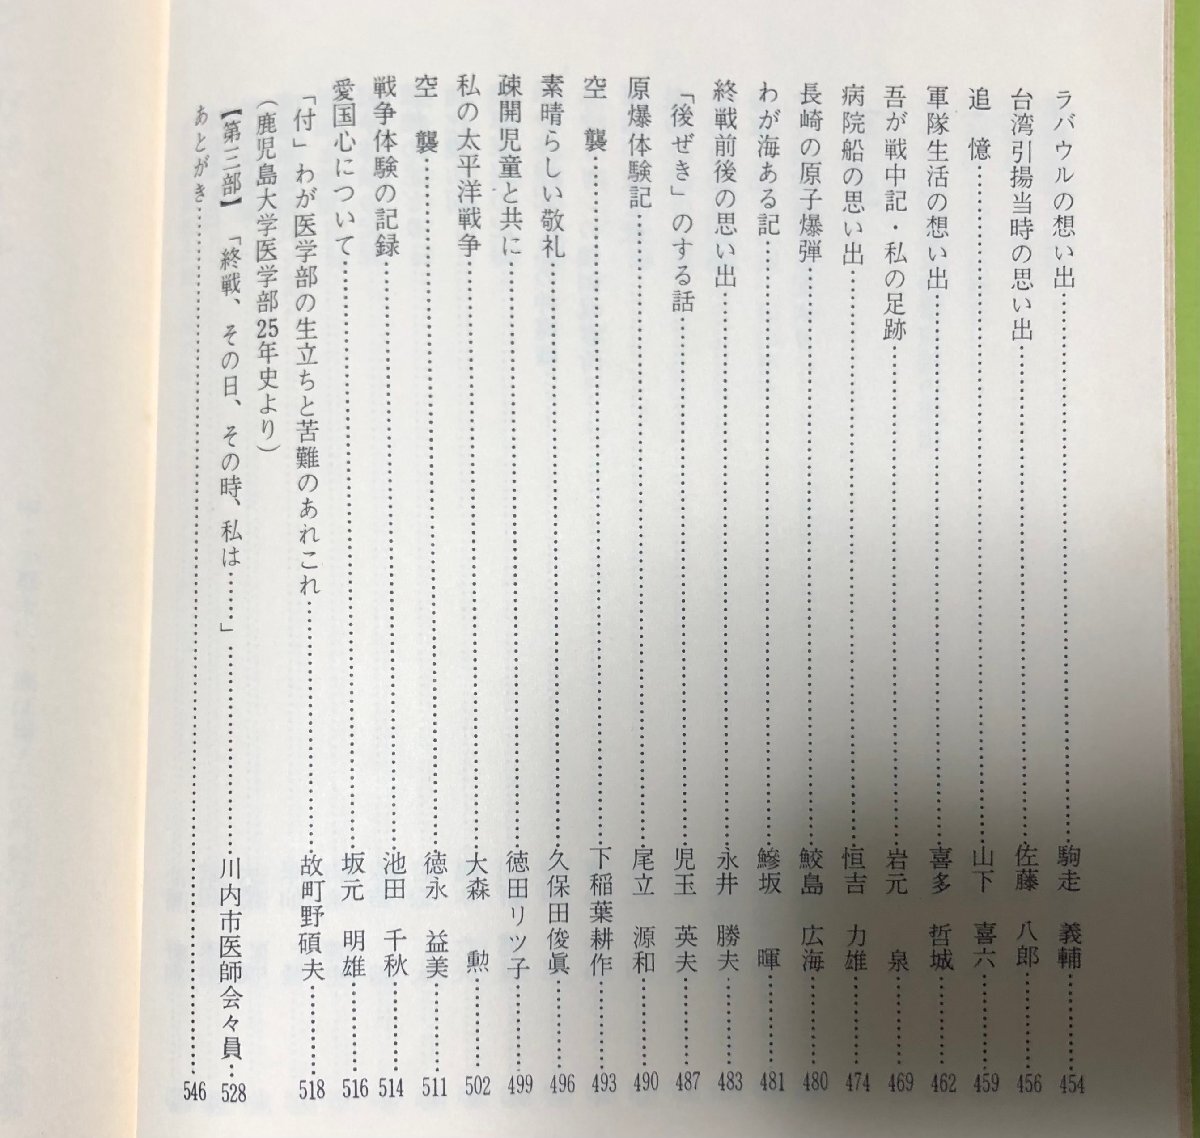 ラバウルの想い出……駒走 義輔……454
台湾引揚当時の思い出……佐藤 八郎……456
追 憶……山下 喜六……459
軍隊生活の想い出……喜多 哲城……462
吾が戦中記・私の足跡……岩元 泉……469
病院船の思い出……恒吉 力雄……474
長崎の原子爆弾……鮫島 広海……480
わが海ある記……鰺坂 暉……481
終戦前後の思い出……永井 勝夫……483
「後ぜき」のする話……児玉 英夫……487
原爆体験記……尾立 源和……490
空 襲……下稲葉耕作……493
素晴らしい敬礼……久保田俊眞……496
疎開児童と共に……徳田リツ子……499
私の太平洋戦争……大森 勲……502
空 襲……徳永 益美……511
戦争体験の記録……池田 千秋……514
愛国心について……坂元 明雄……516
「付」わが医学部の生立ちと苦難のあれこれ……故町野碩夫……518
（鹿児島大学医学部25年史より）
【第三部】「終戦、その日、その時、私は……」……川内市医師会々員…528
あとがき……546